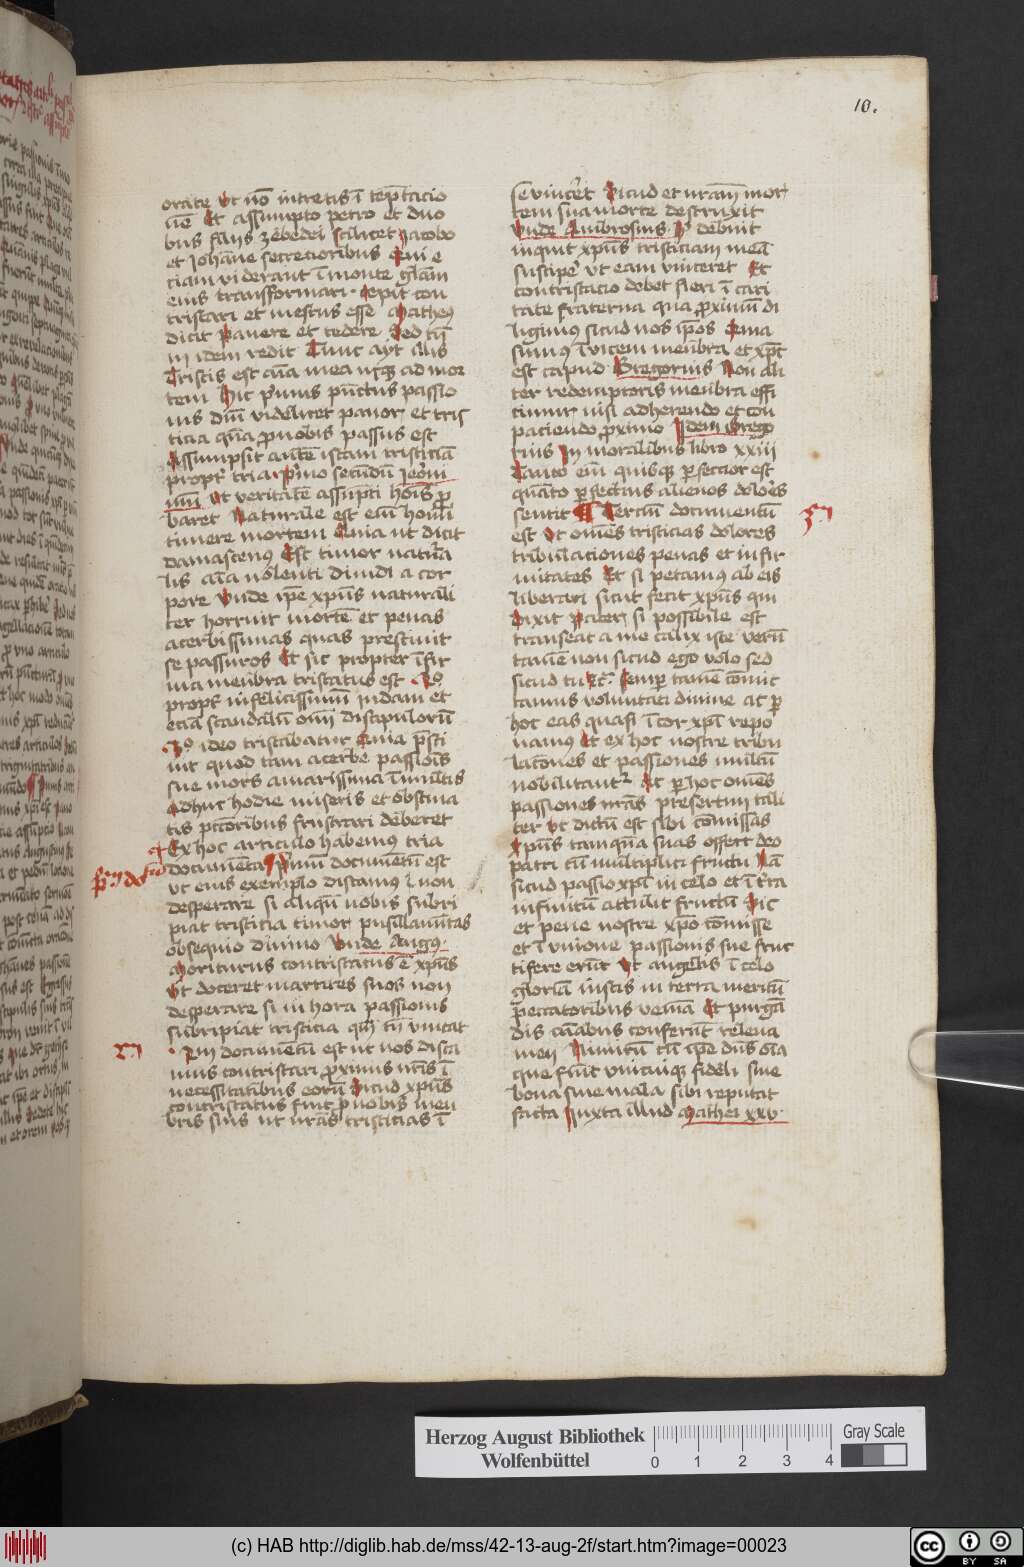 10.
orate Vt nō intretis ī tēptacio
nē Et assumpto petro et duo
bus filijs zebedei scilicet Jacobo
et Johāne secretioribus Qui e
ciam viderant ī monte glām
eius transformari. Cepit con
tristari et mestus esse Matheꝰ
dicit pauere et tedere Sed tn̄
in idem redit Tunc ayt illis
Tristis est aīa mea usqꝫ ad mor
tem Hic pͥmus pūctus passio
nis dnī videlicet pauor et tris
ticia qͣm ꝓ nobis passus est
Assumpsit autē istam tristiciā
proptͬ tria. pͥmo secūdū Jeroni
mū Vt veritatē assūpti hoīs ꝓ
baret Naturale est eī homī
timere mortem Quia ut dicit
damascenꝰ Est timor natura
lis aīa nolenti diuidi a cor
pore Vnde ipē xpūs naturali
ter horruit mortē et penas
acerbissimas quas presciuit
se passuros Et sic propter īfir
ma menbra tristatus est. 2º
proptͬ infelicissimū iudam et
eciā scandalū oīm discipulorū
3º ideo tristabatur Quia p̄sci
uit quod tam acerbe passiōis
sue mors amarissima ī multis
Adhuc hodie miseris et obstina
tis pctoribus frustrari deberet
Ex hoc articulo habemus tria
documēta pͥmū documētū est
ut eius exemplo discamus non
desperare si aliqn̄ nobis subri
piat tristicia timor pusillanimitas
obsequio diuino Vnde Augꝰ.
Moriturus contristatus ē xpūs
Vt doceret martires suos non
desperare si in hora passionis
subripiat tristicia qm̄ tn̄ vincat
2m documētū est ut nos disca
mus contristari ꝓximis nr̄is ī
necessitatibus eorū Sicud xpūs
contristatus fuit ꝓ nobis men
bris suis ut nr̄as tristicias ī
se vincēt Sicud et nr̄am mor
tem sua morte destruxit
Vnde Ambrosius Pͬ debuit
inquit xpūs tristiciam meā
suscipe̾ vt eam vinceret Et
contristacio debet fieri ī cari
tate fraterna qua ꝓximū di
ligimus sicud nos ipōs Quia
sumꝰ īuicem menbra et xpc̄
est capud Gregorius Non ali
ter redemptoris menbra effi
cimur nisi adherendo et con
paciendo ꝓximo Idem Grego
rius In moralibus libro xxiij
Tanto eī quisqꝫ ꝑfeccior est
quāto ꝑfectius alienos dolores
sentit Tercium documentū
est Vt omēs tristicias dolores
tribulaciones penas et infir
mitates Et si petamꝰ ab eis
liberari sicut fecit xpūs qui
Dixit Pater si possibile est
transeat a me calix iste verū
tamē non sicud ego volo sed
sicud tu Etc̄. Semꝑ tamē cōmit
tamus voluntati diuine ac ꝑ
hoc eas quasi ī cor xpī repo
namus Et ex hoc nostre tribu
lacōnes et passiones multū
nobilitantͬ Ac ꝑ hoc omēs
passiones nr̄as presertim tali
ter Vt dictū est sibi cōmissas
Xpūs tamquā suas offert deo
patri cū multiplici fructu Nā
sicud passio xpī in celo et ī tͬra
infinitū attulit fructū Sic
et pene nostre xpō cōmisse
et ī vnione passionis sue fruc
tifere erūt Vt angelis ī celo
gloriā iustis in terra meritū
peccatoribus veniā Et purgā
dis aīabus conferūt releua
men Nimirū cū ipē dūs oīa
que fiūt vnicuiqꝫ fideli siue
bona siue mala sibi reputat
facta Iuxta illud Mathei xxv.
Herzog August Bibliothek
Wolfenbüttel
0 1 2 3 4
Gray Scale
(c) HAB http://diglib.hab.de/mss/42-13-aug-2f/start.htm?image=00023
cc BY SA